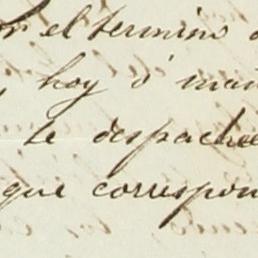 r el termino d
, hoy o' mañ
le despache
que correspon